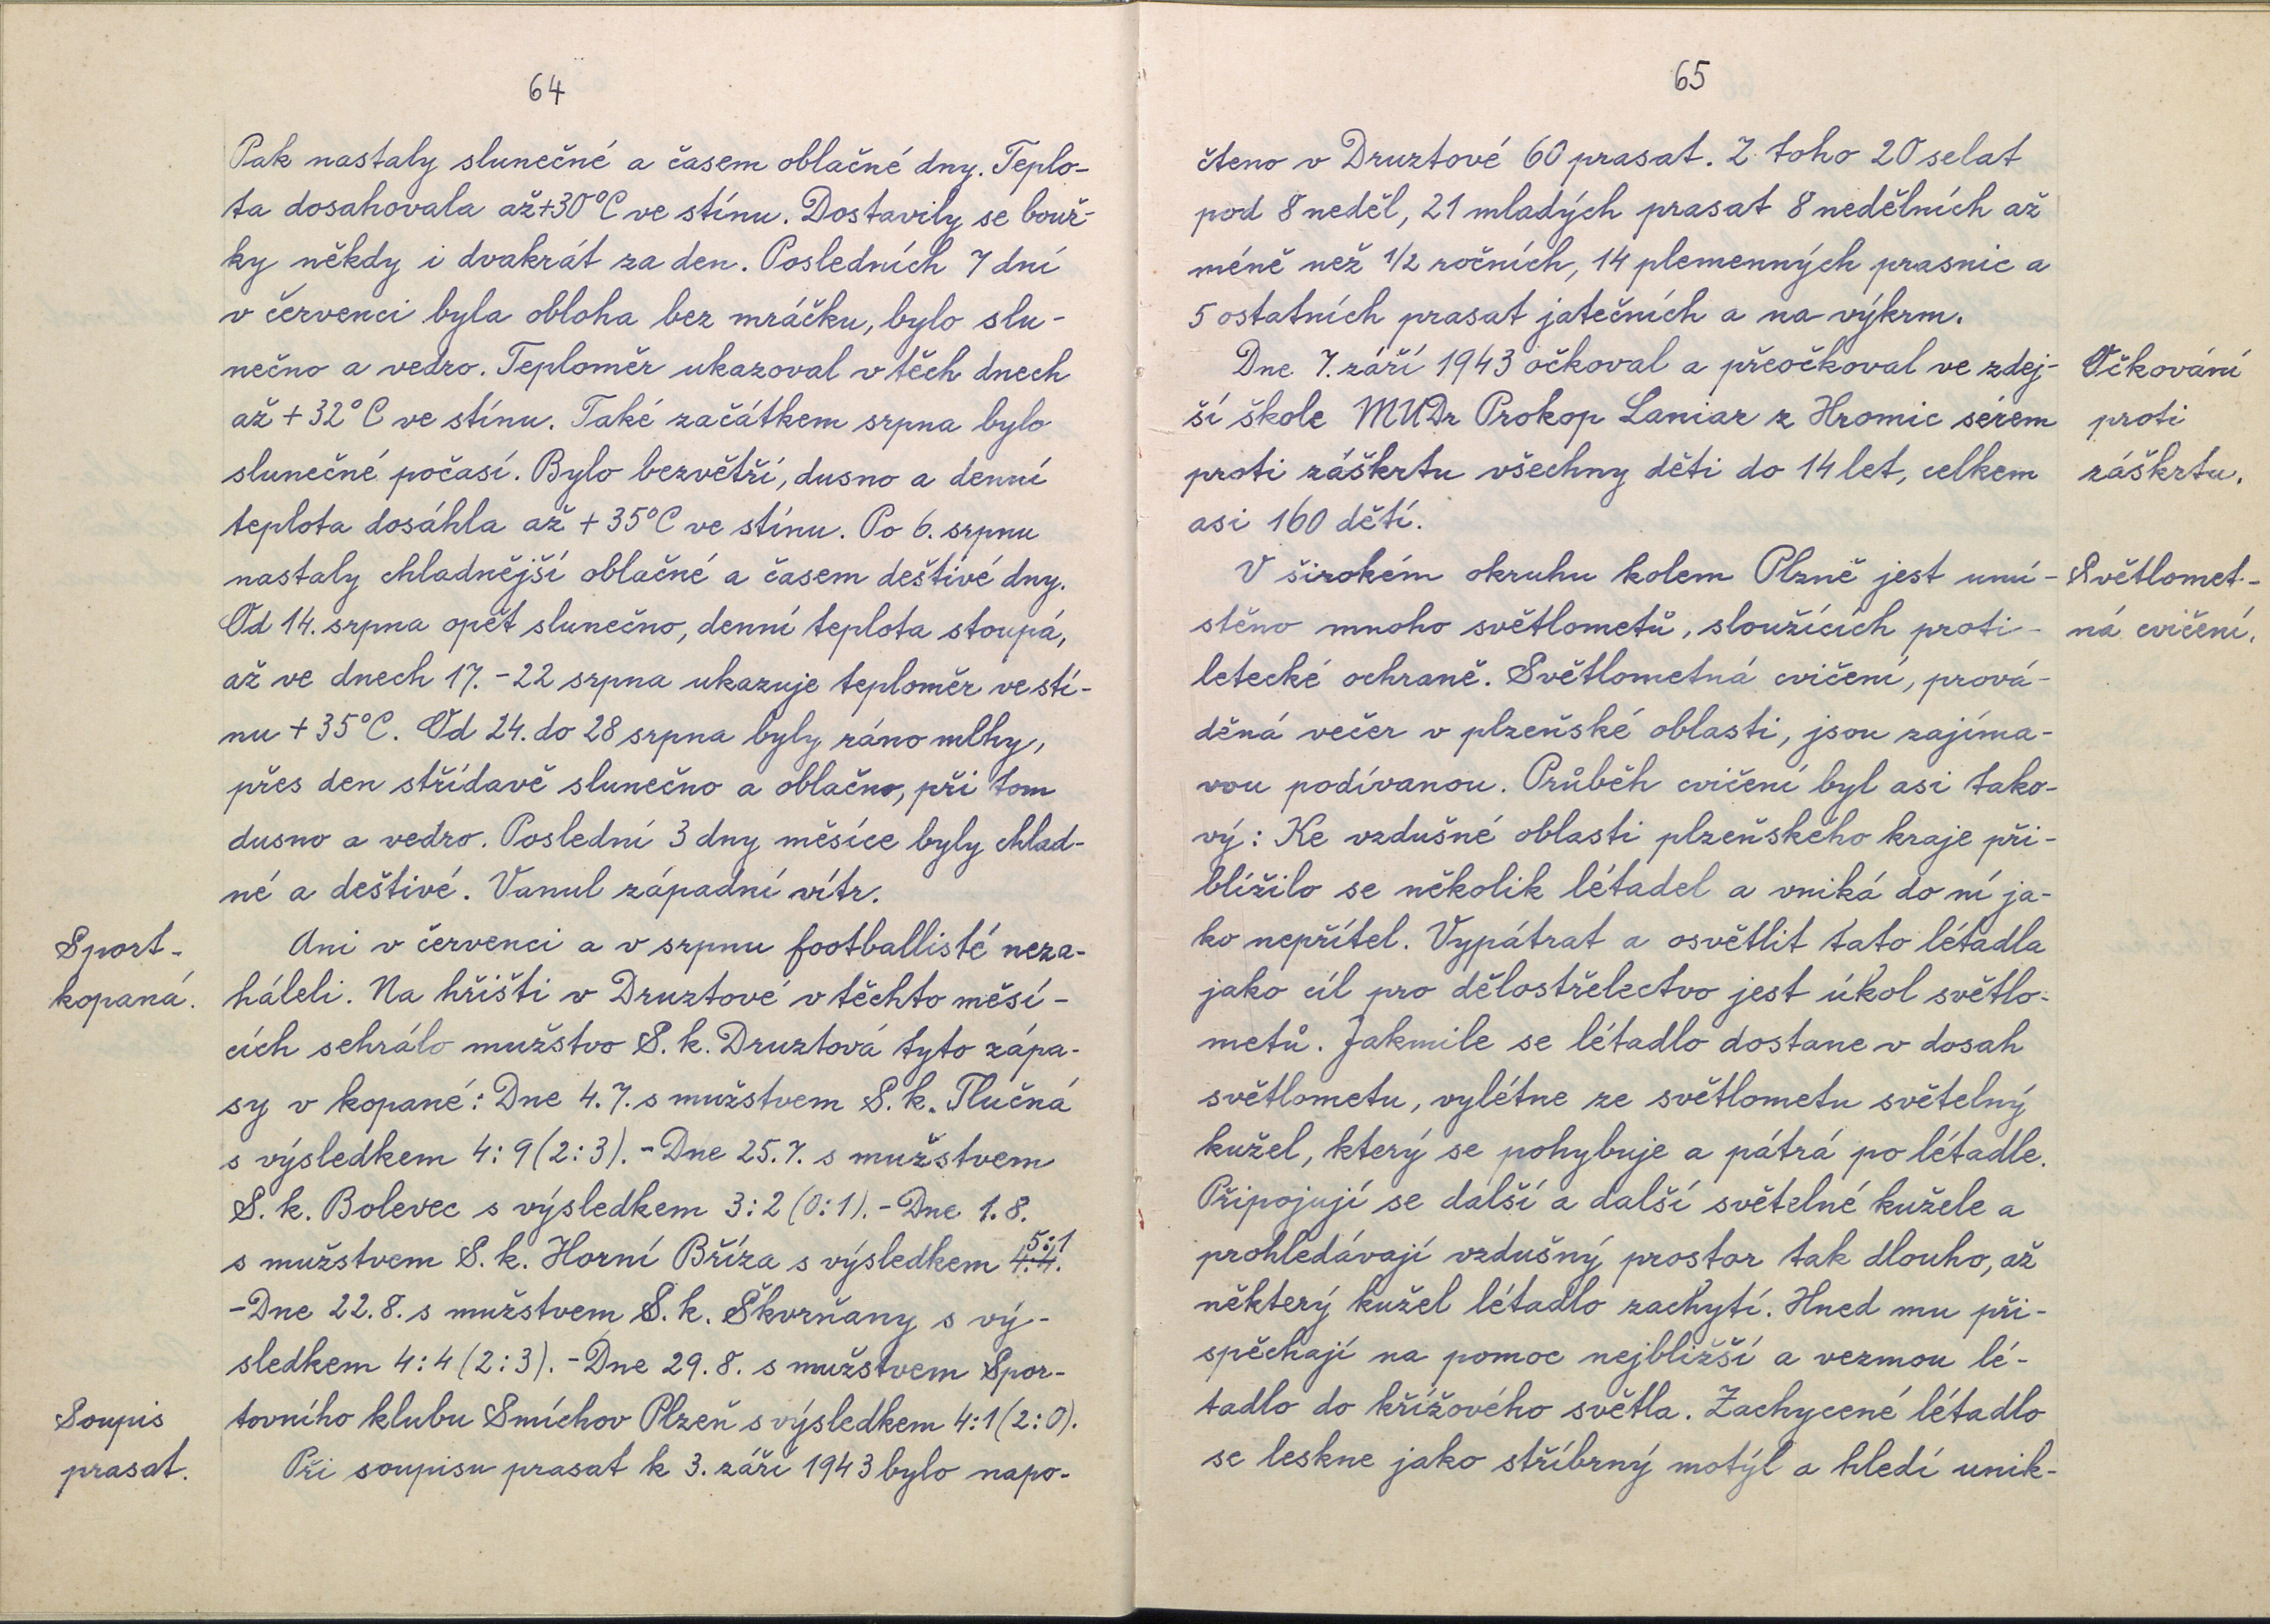 64
Pak nastaly slunečné a časem oblačné dny. Teplo-
ta dosahovala až +30°C ve stínu. Dostavily se bouř-
ky někdy i dvakrát za den. Posledních 7 dní
v červenci byla obloha bez mráčku, bylo slu-
nečno a vedro. Teploměr ukazoval v těch dnech
až + 32°C ve stínu. Také začátkem srpna bylo
slunečné počasí. Bylo bezvětří, dusno a denní
teplota dosáhla až + 35°C ve stínu. Po 6. srpnu
nastaly chladnější oblačné a časem deštivé dny.
Od 14. srpna opět slunečno, denní teplota stoupá,
až ve dnech 17. - 22 srpna ukazuje teploměr ve stí-
nu + 35°C. Od 24. do 28 srpna byly ráno mlhy,
přes den střídavě slunečno a oblačno, při tom
dusno a vedro. Poslední 3 dny měsíce byly chlad-
né a deštivé. Vanul západní vítr.
Sport -
kopaná.
Ani v červenci a v srpnu footballisté neza-
háleli. Na hřišti v Druztové v těchto měsí-
cích sehrálo mužstvo S. k. Druztová tyto zápa-
sy v kopané: Dne 4. 7. s mužstvem S. k. Tlučná
s výsledkem 4 : 9 (2 : 3). - Dne 25. 7. s mužstvem
S. k. Bolevec s výsledkem 3 : 2 (0 : 1). - Dne 1. 8.
5 : 1
s mužstvem S. k. Horní Bříza s výsledkem 4:4.
- Dne 22. 8. s mužstvem S. k. Škvrňany s vý-
sledkem 4 : 4 (2 : 3). - Dne 29. 8. s mužstvem Spor-
tovního klubu Smíchov Plzeň s výsledkem 4 : 1 (2 : 0).
Soupis
prasat.
Při soupisu prasat k 3. září 1943 bylo napo-
65
čteno v Druztové 60 prasat. Z toho 20 selat
pod 8 neděl, 21 mladých prasat 8 nedělních až
méně než 1/2 ročních, 14 plemenných prasnic a
5 ostatních prasat jatečních a na výkrm.
Dne 7. září 1943 očkoval a přeočkoval ve zdej-
ší škole MUDr Prokop Laniar z Hromic sérem
proti záškrtu všechny děti do 14 let, celkem
asi 160 dětí.
Očkování
proti
záškrtu.
V širokém okruhu kolem Plzně jest umí-
stěno mnoho světlometů, sloužících proti-
letecké ochraně. Světlometná cvičení, prová-
děná večer v plzeňské oblasti, jsou zajíma-
vou podívanou. Průběh cvičení byl asi tako-
vý: Ke vzdušné oblasti plzeňského kraje při-
blížilo se několik létadel a vniká do ní ja-
ko nepřítel. Vypátrat a osvětlit tato létadla
jako cíl pro dělostřelectvo jest úkol světlo-
metů. Jakmile se létadlo dostane v dosah
světlometu, vylétne ze světlometu světelný
kužel, který se pohybuje a pátrá po létadle.
Připojují se další a další světelné kužele a
prohledávají vzdušný prostor tak dlouho, až
některý kužel létadlo zachytí. Hned mu při-
spěchají na pomoc nejbližší a vezmou lé-
tadlo do křížového světla. Zachycené létadlo
se leskne jako stříbrný motýl a hledí unik-
Světlomet-
ná cvičení.